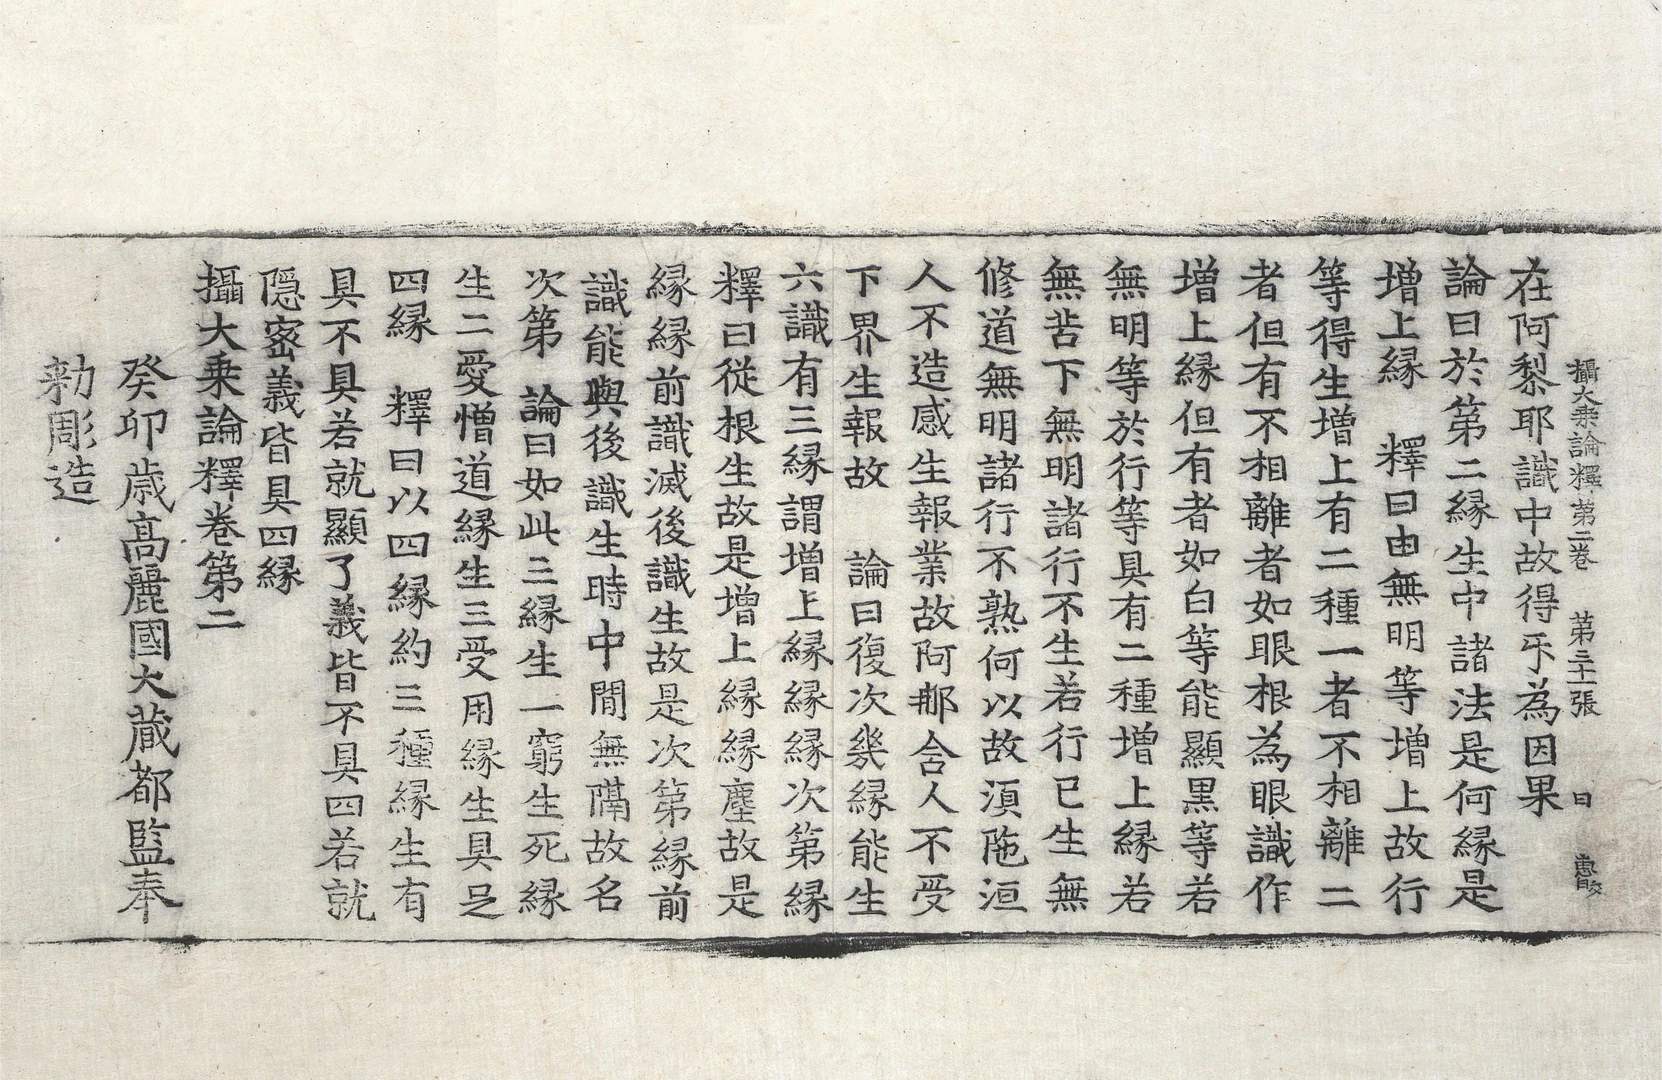 攝大乗論釋第二卷　第三十一張　曰
在阿黎耶識中故得㸦為因果
論曰於第二縁生中諸法是何縁是
増上縁　釋曰由無明等増上故行
等得生増上有二種一者不相離二
者但有不相離者如眼根為眼識作
増上縁但有者如白等能顯黒等若
無明等於行等具有二種増上縁若
無苦下無明諸行不生若行已生無
修道無明諸行不熟何以故湏陁洹
人不造感生報業故阿𨙻含人不受
下界生報故　論曰復次幾縁能生
六識有三縁謂増上縁縁縁次第縁
釋曰從根生故是増上縁縁塵故是
縁縁前識滅後識生故是次第縁前
識能與後識生時中間無隔故名
次第　論曰如此三縁生一窮生死縁
生二愛憎道縁生三受用縁生具足
四縁　釋曰以四縁約三種縁生有
具不具若就顯了義皆不具四若就
隠密義皆具四縁
攝大乗論釋卷第二
癸卯歲髙麗國大藏都監奉
勑彫造